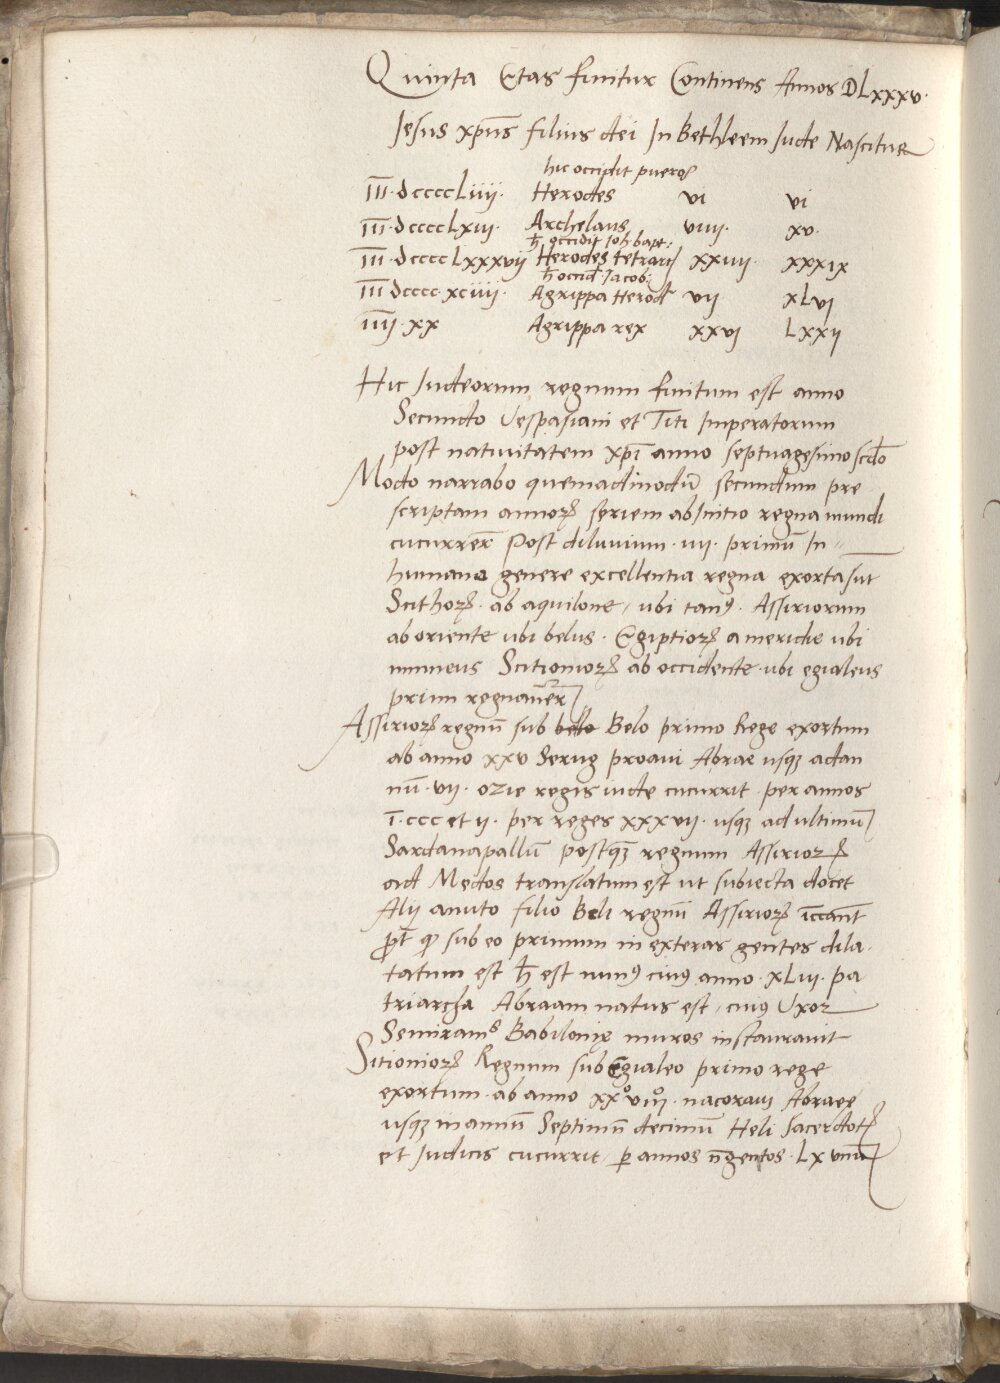 Quinta Etas finitur Continens Annos DLxxxv.
Jesus xpūs filius dei In Bethleem Jude Nascitur
hic occidit pueros
III·dccccLiiij· Herodes vi vi
III·dccccLxiij· Archelaus viiij· xv·
h̄ occidit Joh̄ bapt:
III·dccccLxxxvij Herodes tetrarc̄ xxiiij· xxxix
h̄ occid̄ Jacob:
III dcccc·xciiij· Agrippa Herod̄ vij xLvj
IIIJ·xx Agrippa rex xxvj Lxxij
Hic Judeorum regnum finitum est anno
Secundo Vespasiani et Titi Imperatorum
post natiuitatem xp̄i anno septuagesimo scd̄o
Modo narrabo quemadmodū secundum pre
scriptam annoꝝ seriem ab Initio regna mundi
cucurrer̄ Post diluuium·iiij· primū In
humano genere excellentia regna exorta sūt
Scithoꝝ· ab aquilone, ubi tanꝰ· Assiriorum
ab oriente ubi belus· Egiptioꝝ a meridie ubi
mineus Scitionioꝝ ab occidente·ubi egialeus
primi regnauer̄
Assirioꝝ regnū sub bello Belo primo Rege exortum
ab anno xxv Serug proaui Abrae usqꝫ ad an
nū·vij· ozie regis iude cucurrit per annos
ī·ccc et ij· per reges xxxvij· usqꝫ ad ultimū
Sardanapallū postqꝫ regnum Assirioꝝ
ad Medos translatum est ut subiecta docet
Alij a nino filio Beli regnū Assirioꝝ īccant̄
sub eo primum in exteras gentes dila·
tatum est h̄ est ninꝰ cuiꝰ anno·xLiij· pa
triarcha Abraam natus est, cuiꝰ Uxor
Semiramˢ Babilonię muros instaurauit
Sitionioꝝ Regnum sub Egialeo primo rege
exortum·ab anno xx°viiij°· nacoraui Abraee
usqꝫ in annū Septimū decimū Heli Sacerdotꝭ
et Judicis cucurrit, ꝑ annos n̄gentos·Lx unū